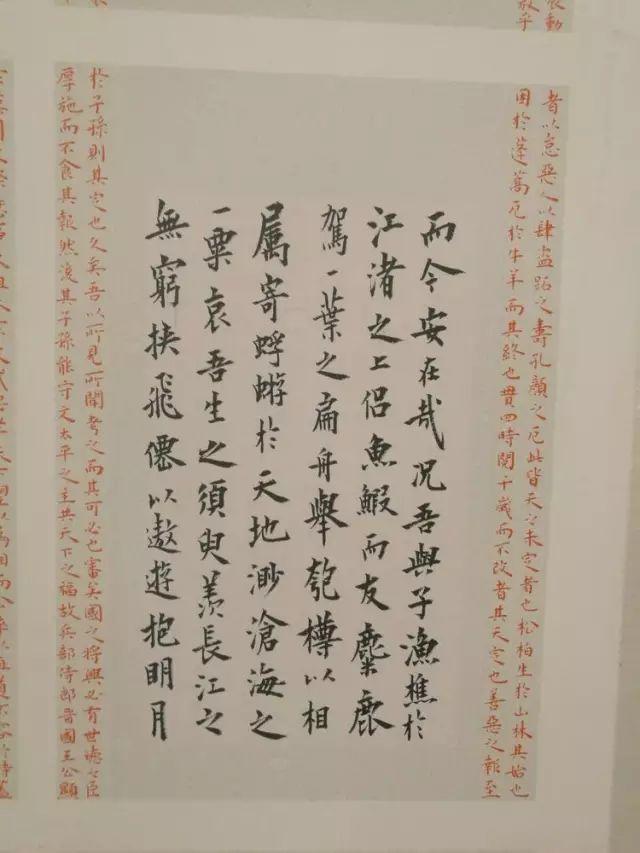 者以怠惡人以肆盜跖之壽孔顏之厄此皆天之未定者也松柏生於山林其始也
困於蓬蒿厄於牛羊而其終也貫四時閱千歲而不改者其天定也善惡之報至
而今安在哉況吾與子漁樵於
江渚之上侶魚鰕而友麋鹿
駕一葉之扁舟舉匏樽以相
属寄蜉蝣於天地渺滄海之
一粟哀吾生之須臾羨長江之
無窮挾飛僊以遨遊抱明月
於子孫則其定也久矣吾以所見所聞考之而其可必也審矣國之將興必有世德之臣
厚施而不食其報然後其子孫能守文太平之主共天下之福故兵部侍郎晉國王公顯